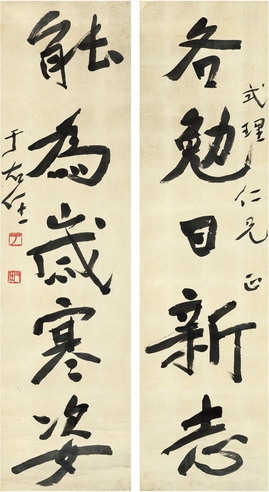 各勉日新志
式理仁兄正
能為歲寒姿
于右任